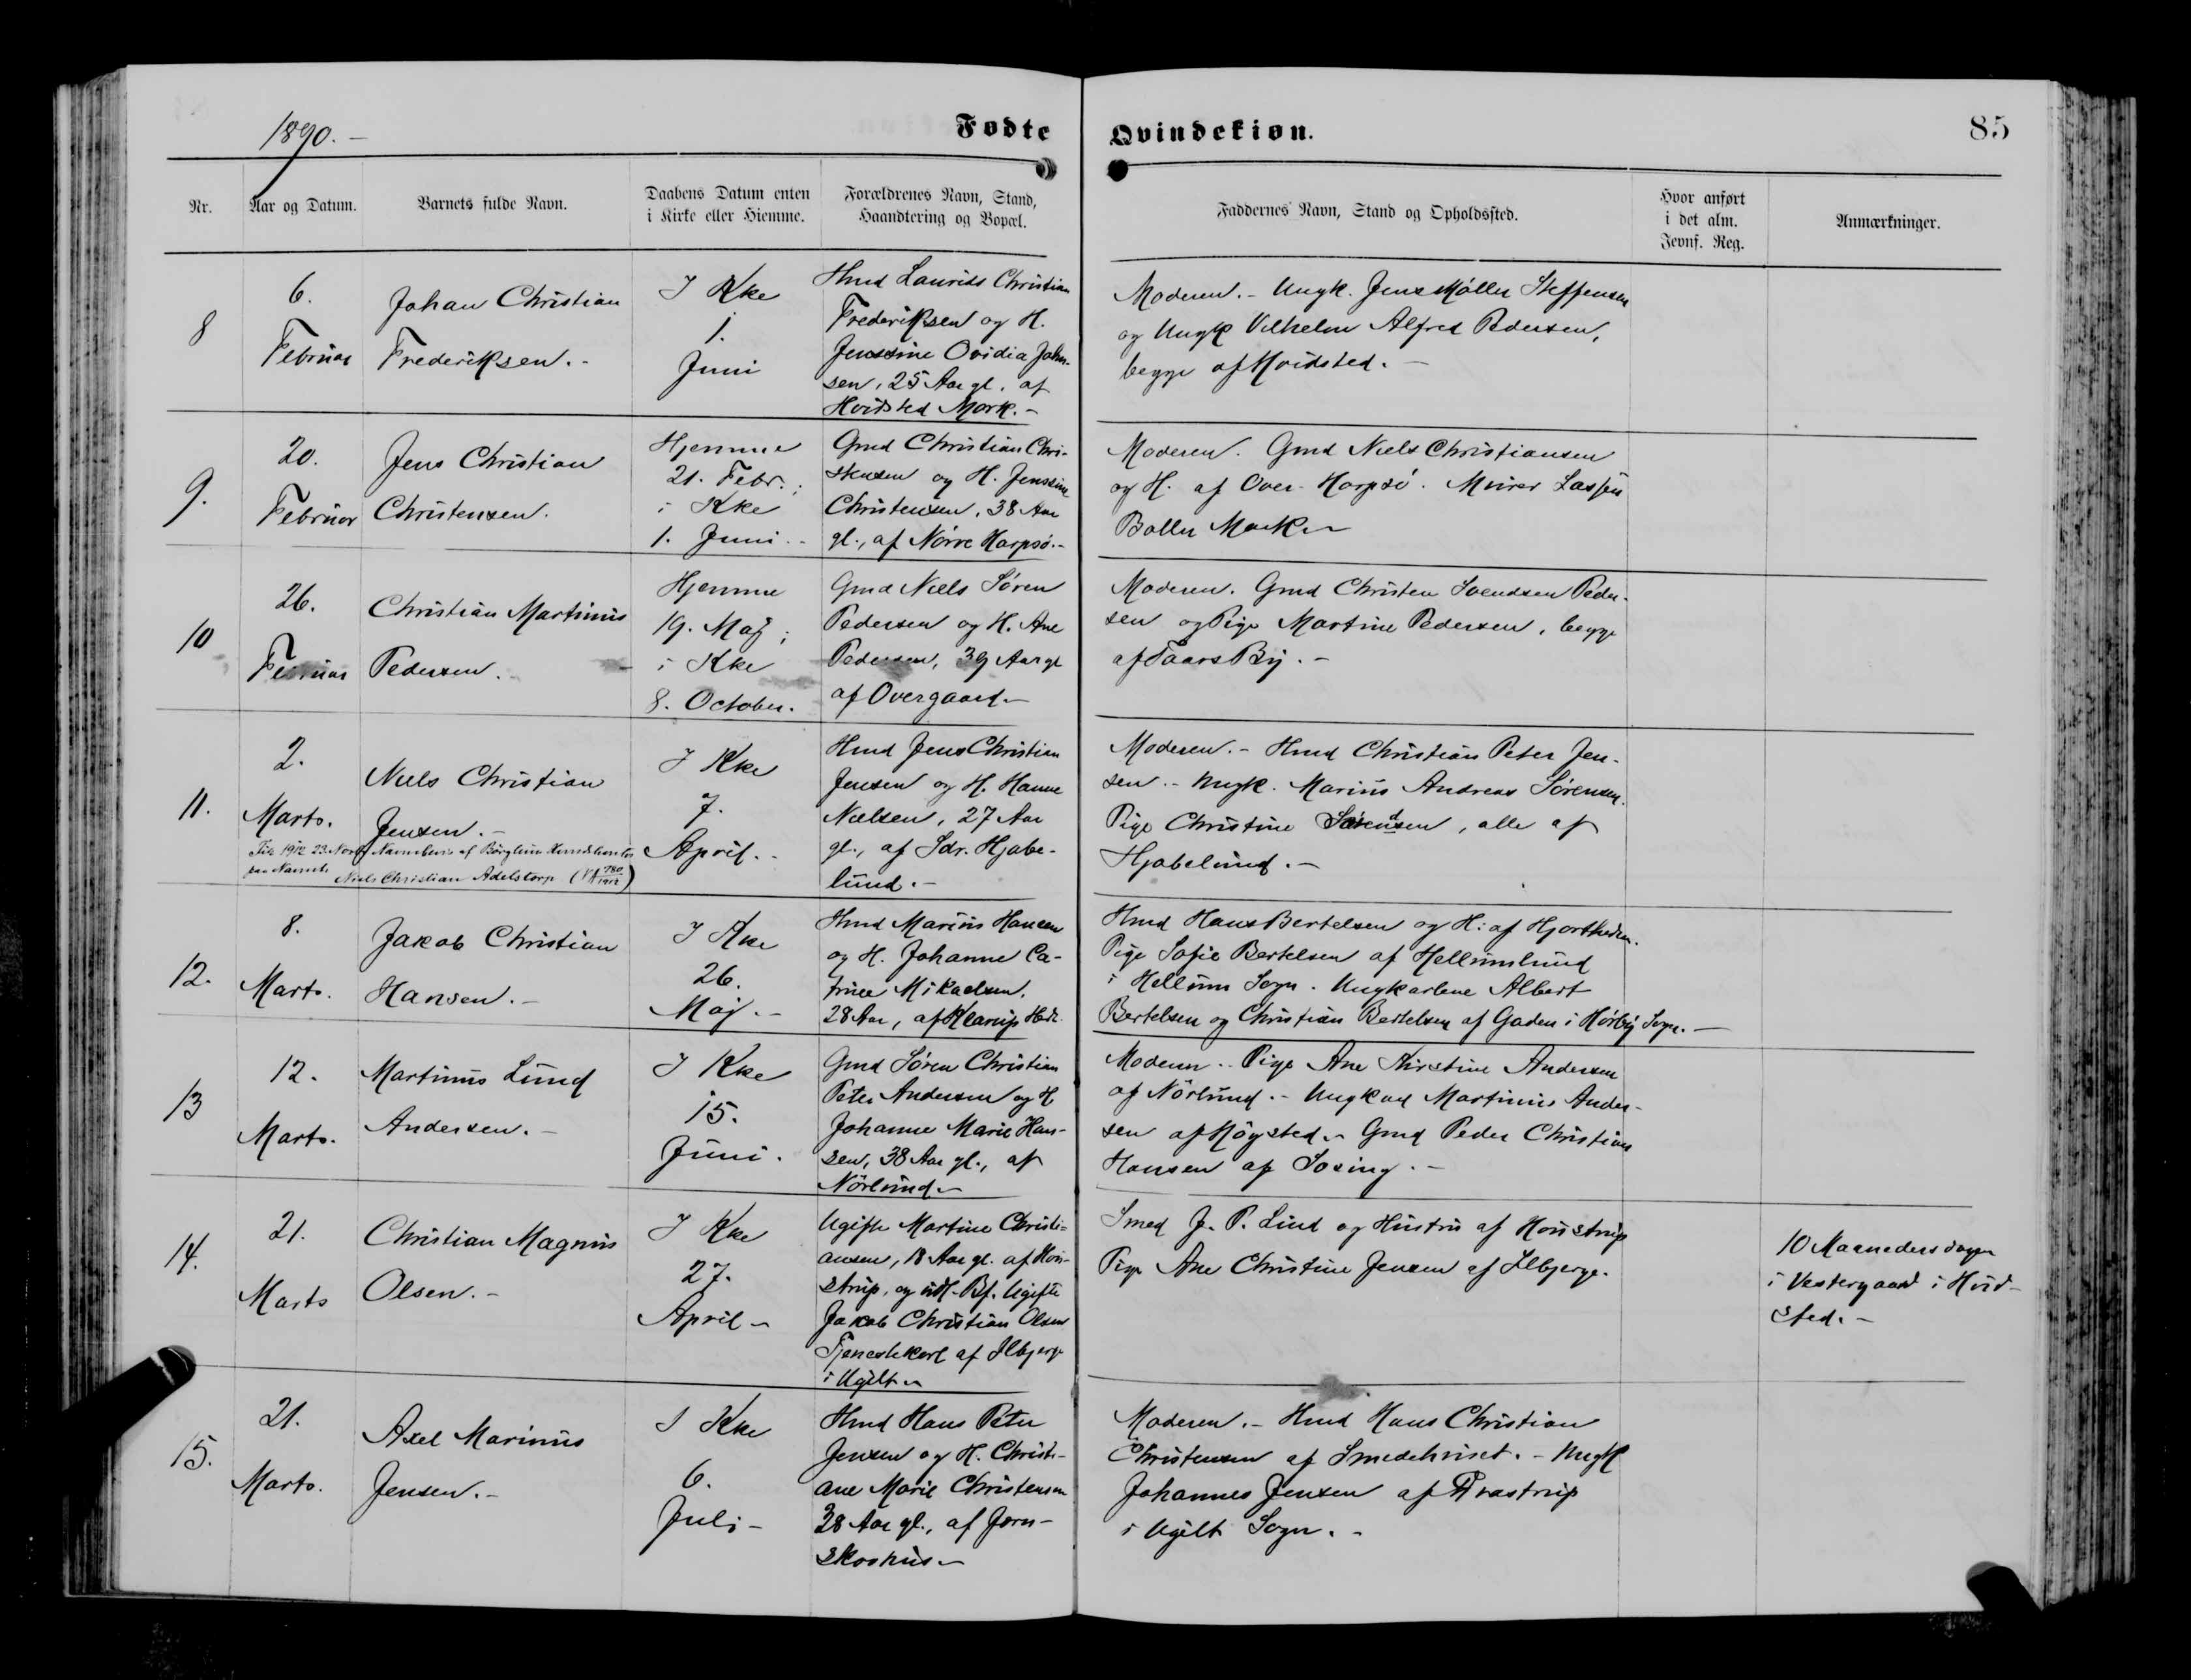 1890. -
Fødte
Qvindekiøn.
85
Nr.
Aar og Datum.
Barnets fulde Navn.
Daabens Datum enten
i Kirke eller Hiemme.
Forældrenes Navn, Stand,
Haandtering og Bopæl.
Faddernes Navn, Stand og Opholdssted.
Hvor anført
i det alm.
Jevnf. Reg.
Anmærkninger.
8
6.
Februar
Johan Christian
Frederiksen. -
I Kke
1.
Juni
Hmd Laurids Christian
Frederiksen og H.
Jenssine Ovidia Johan-
sen, 25 Aar gl. af
Hvidsted Mark. -
Moderen. - Ungk. Jens Møller Steffensen
og Ungk Vilhelm Alfred Pedersen,
begge af Hvidsted. -
9.
20.
Februar
Jens Christian
Christensen.
Hjemme
21. Febr.;
i Kke
1. Juni. -
Gmd Christian Chri-
stensen og H. Jenssine
Christensen, 38 Aar
gl., af Nörre Harpsø. -
Moderen. Gmd Niels Christiansen
og H. af Over Harpsø. Murer Lassen
Boller Mark -
10
26.
Februar
Christian Martinus
Pedersen.
Hjemme
19. Maj;
i Kke
8. October.
Gmd Niels Søren
Pedersen og H. Ane
Pedersen, 39 Aar gl
af Overgaard -
Moderen. Gmd Christen Svendsen Peder-
sen og Pige Martine Pedersen, begge
af Taars By. -
11.
2.
Marts.
Niels Christian
Jensen. -
1912 23 Novbr Navnebevis af Børglum Herredskontor
paa Navnet
Niels Christian Adelstorp (VA 780/1912)
I Kke
7.
April. -
Hmd Jens Christian
Jensen og H. Hanne
Nielsen, 27 Aar
gl., af Sdr. Hjabe-
lund. -
Moderen. - Hmd Christian Peter Jen-
sen. - Ungk. Marius Andreas Sörensen.
Pige Christine Sörensen, alle af
Hjabelund. -
12.
8.
Marts.
Jakob Christian
Hansen. -
I Kke
26.
Maj. -
Hmd Marius Hansen
og H. Johanne Ca-
trine Mikaelsen,
28 Aar, af Klarup Hede
Hmd Hans Bertelsen og H: af Hjortheden.
Pige Sofie Bertelsen af Hellumlund
i Hellum Sogn. Ungkarlene Albert
Bertelsen og Christian Bertelsen af Gaden i Hörby Sogn. -
13
12.
Marts.
Martinus Lund
Andersen. -
I Kke
15.
Juni.
Gmd Søren Christian
Peter Andersen og H
Johanne Marie Han-
sen, 38 Aar gl., af
Nörlund -
Moderen. - Pige Ane Kirstine Andersen
af Nörlund. - Ungkarl Martinus Ander-
sen af Högsted - Gmd Peder Christian
Hansen af Sosing. -
14.
21.
Marts
Christian Magnus
Olsen. -
I Kke
27.
April -
Ugifte Martine Christi-
ansen, 18 Aar gl. af Hou-
strup, og udl. Bf. Ugifte
Jakob Christian Olsen
Tjenestekarl af Ilbjerge
i Ugilt -
Smed J. P. Lind og Hustru af Houstrup
Pige Ane Christine Jensen af Ilbjerge.
10 Maanedersdagen
i Vestergaard i Hvid-
sted. -
15.
21.
Marts.
Axel Marinus
Jensen. -
I Kke
6.
Juli -
Hmd Hans Peter
Jensen og H. Christi-
ane Marie Christensen
28 Aar gl., af Jorn-
skoshus -
Moderen. - Hmd Hans Christian
Christensen af Smedehuset. - Ungk
Johannes Jensen af Trastrup
i Ugilt Sogn. -